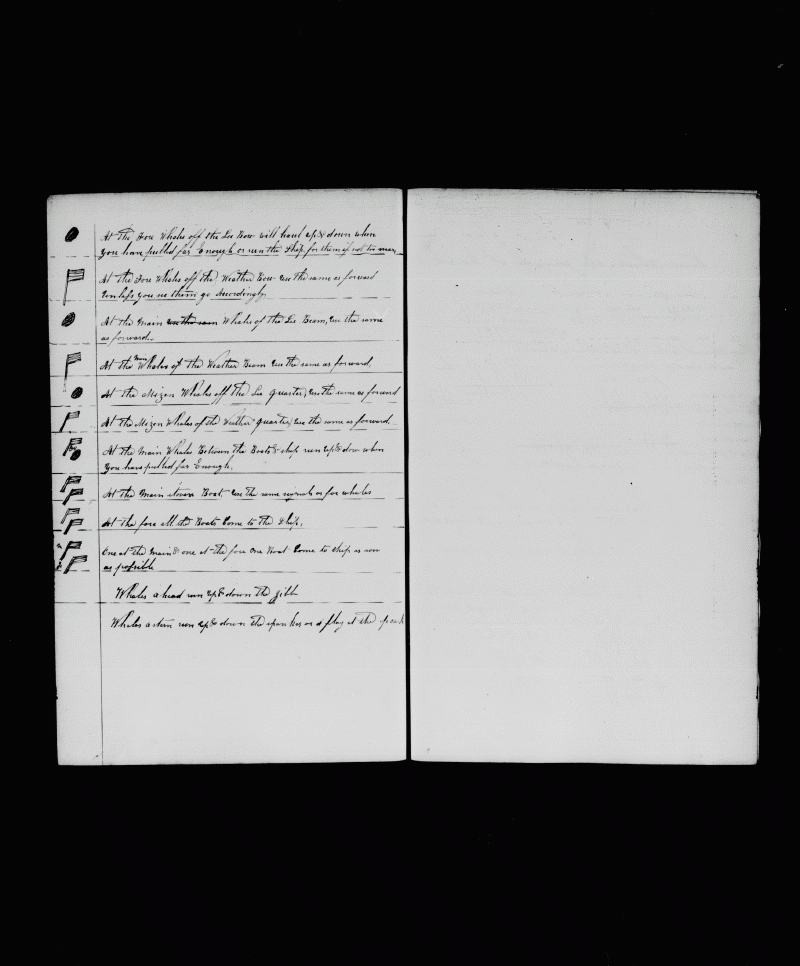 At the Fore Whales off the Lee Bow will haul up & down when
you have pulled far Enough or run the Ship for them if not too many
At the Fore Whales off the Weather Bow use the same as forward
Unless you see them go Accordingly
At the Main use the same Whales of the Lee Beam, use the same
as forward.
At the Main Whales of the Weather Beam use the same as forward,
At the Mizen Whales off the Lee quarter, use the same as forward
At the Mizen Whales of the Weather quarter, use the same as forward.
At the Main Whales Between the Boats & ship run up & down when
you have pulled far Enough.
At the Main stoven Boat, use the same signals as for whales
At the fore All the Boats Come to the Ship,
One at the Main & one at the fore One Boat Come to Ship as soon
as possible
Whales ahead run up & down the gibb
Whales astern run up & down the spanker or a flag at the